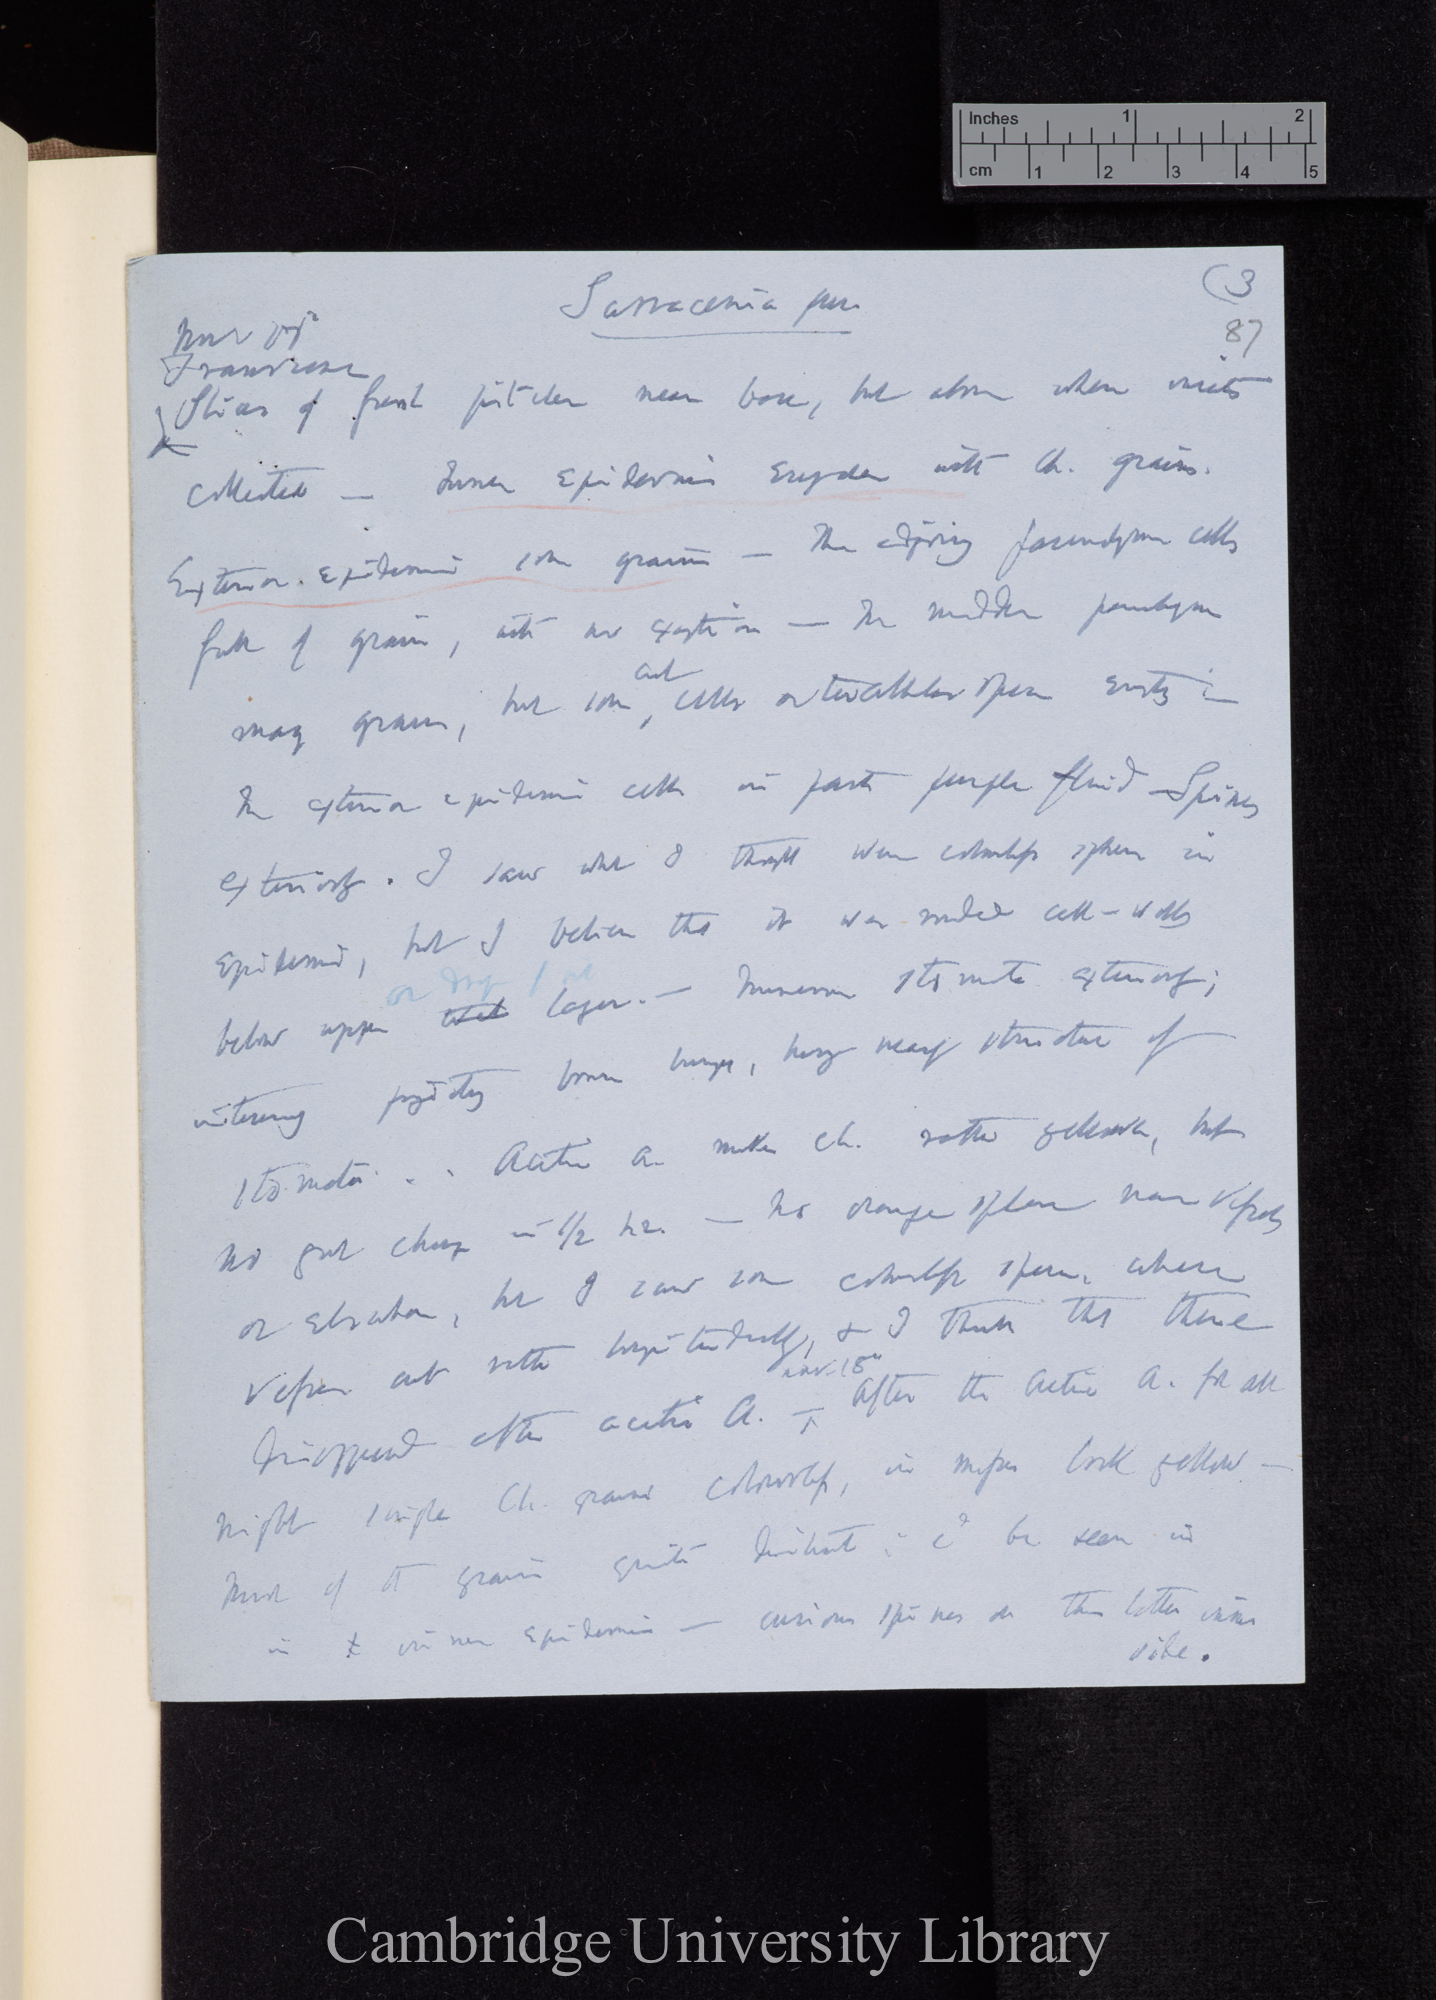 Inches 1 2
cm 1 2 3 4 5
(3
Sarracenia pur.
87
Nov 17th
Transverse
Slices of fresh pitcher near base, but above where insects
collected — Inner Epidermis with Ch. grains.
Exterior. epidermis some grains — The adjoining parenchyma cells
full of grains, with no exception — The middle parenchyma
many grains, but some cut cells or intercellular spaces empty —
The exterior epidermis cells in parts purple fluid — Spines
exteriorly. I saw what I thought were colourless spheres in
Epidermis, but I believe that it was cell-walls
below upper layer. — Numerous stomata exteriorly;
brown, nearly structure of
stomata. Acetic A. makes Ch. rather yellowish, but
no great change in 1/2 hr. — No orange spheres near Vessels
or elsewhere, but I saw some colourless spheres, where
Vessels cut rather longitudinally, & I think that these
disappeared after acetic A. — Nov. 18th After the Acetic A. for all
night single Ch. grains colourless, in masses look yellow —
Most of the grains quite distinct; cd be seen in
in inner Epidermis — curious spines on this latter inner
side.
Cambridge University Library